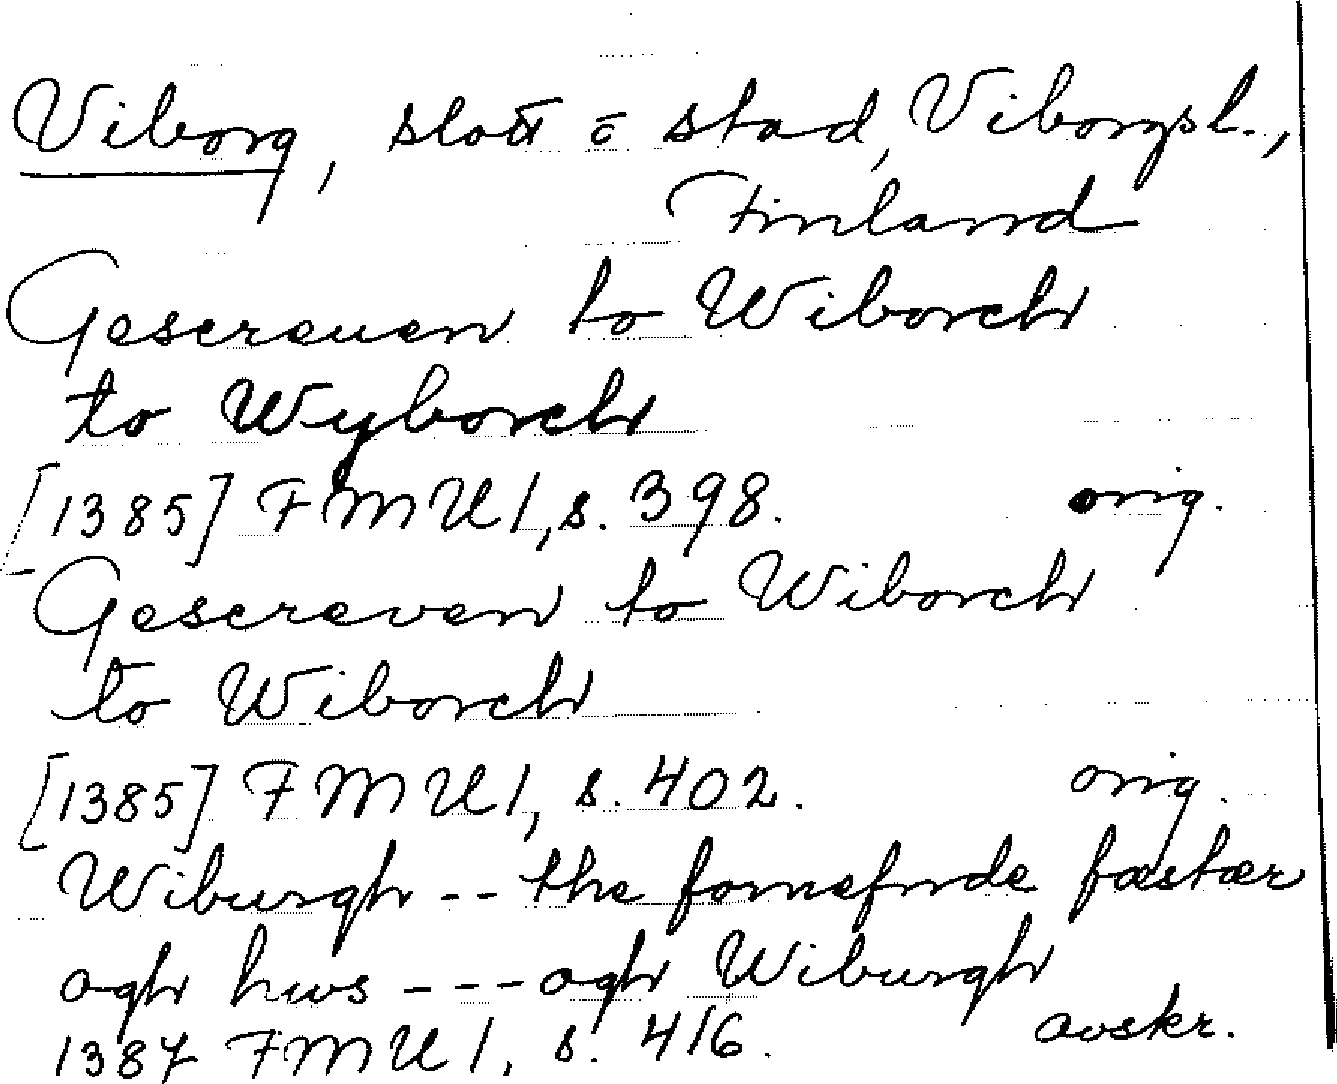 Viborg, slott o stad, Viborgsl.,
Finland
Gescreuen to Wiborch
to Wyborch
[1385] FMU 1, s. 398. orig.
Gescreven to Wiborch
to Wiborch
[1385] FMU 1, s. 402. orig.
Wiburgh -- the fornefnde fæstær
ogh hws --- ogh Wiburgh
1387 FMU 1, s. 416. avskr.